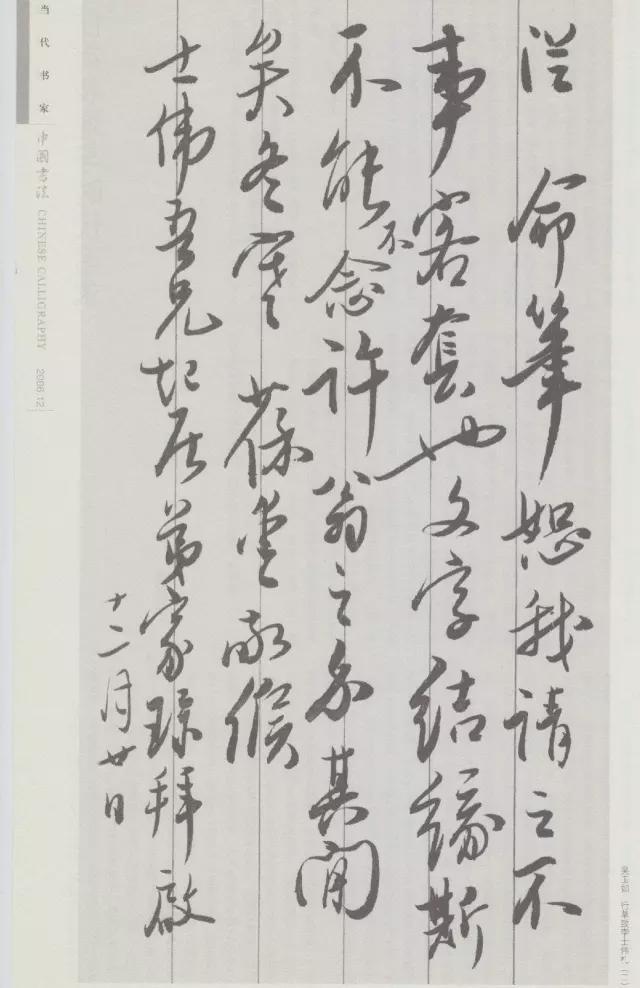 從 命筆恕我請之不
事客套也文字結緣斯
不能不念許翁之其間
矣冬寒 葆愛敬候
士偉吾兄起居弟家琭拜啟
十二月廿日
吴玉如 行草致李士伟札(二)
当代书家
中國書法 CHINESE CALLIGRAPHY 2006.12